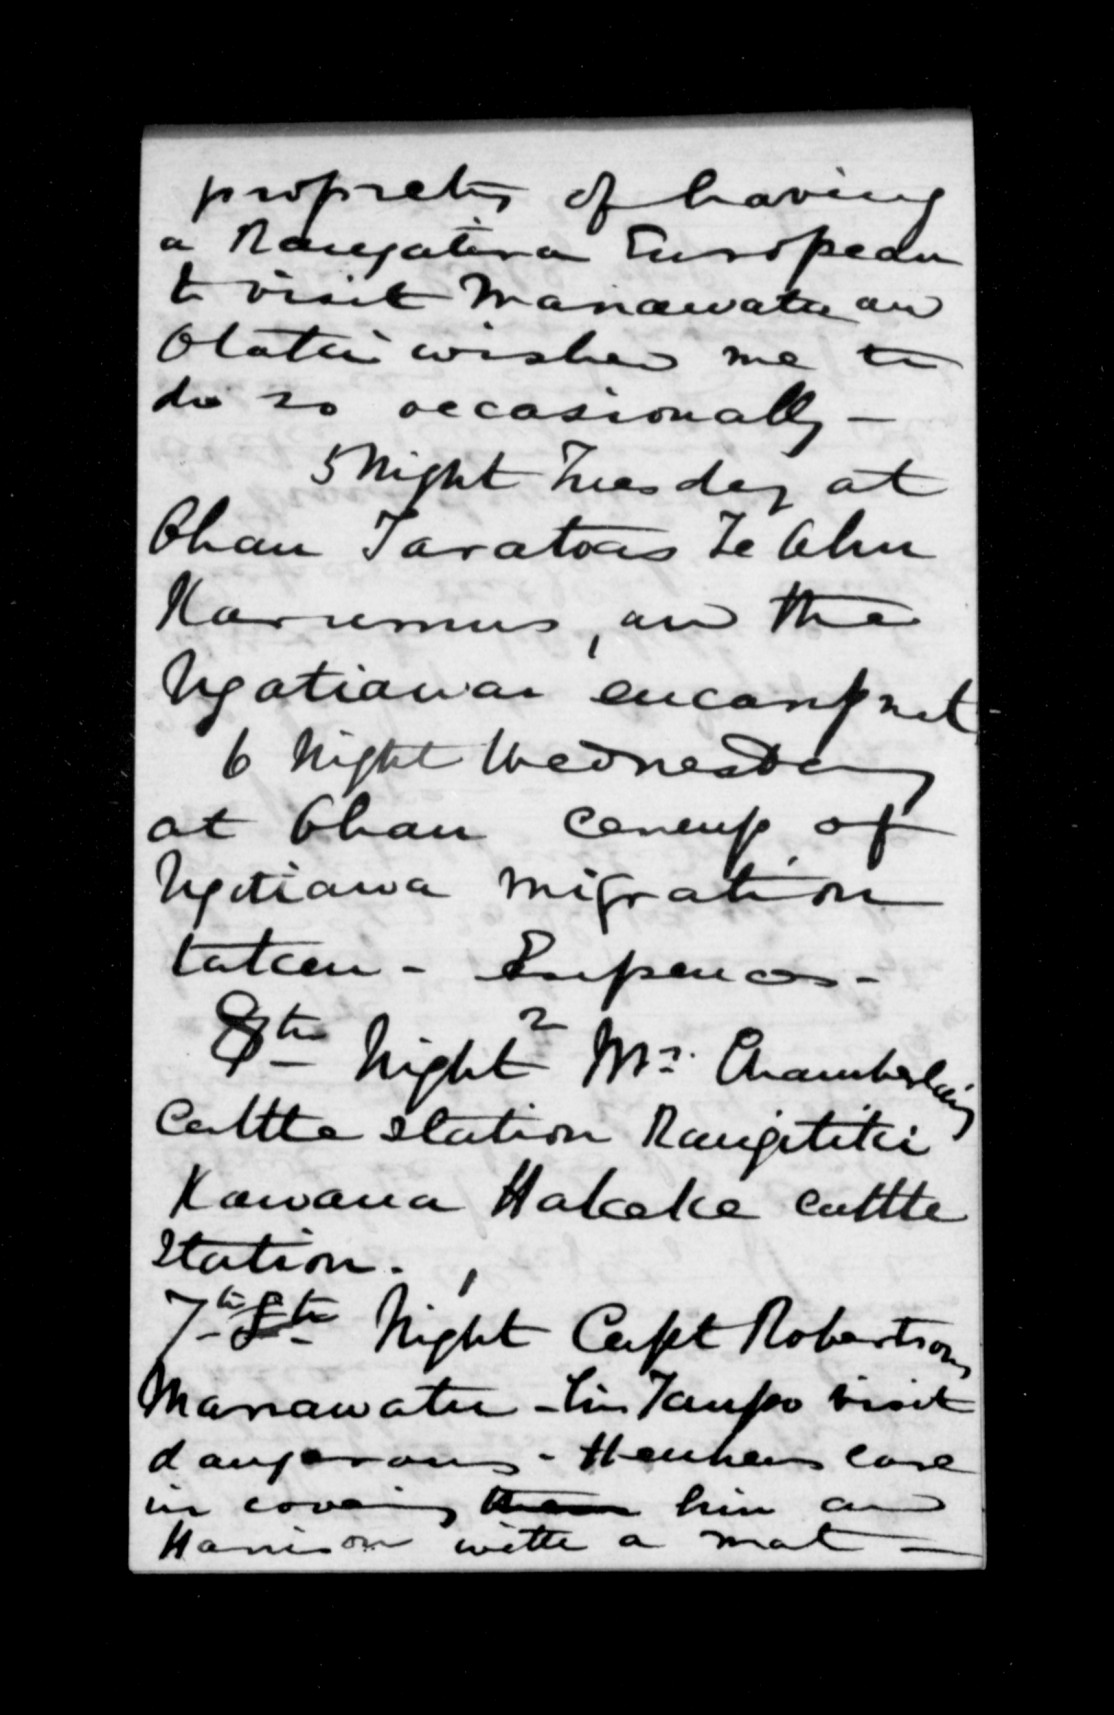 propriety of having
a Rangatira European
to visit Manawatu and
Otaki wished me to
do so occasionally —
5 Night Tuesday at
Ohau Taratoas Te Ahu
Karumus, and the
Ngatiawas encampmt
6 Night Wednesday
at Ohau census of
Ngatiawa migration
taken -
8th Night 2 Mr. Chamberlains
Cattle Station Rangitiki
Kawana Hakeke cattle
Station.
7th 8th Night Capt Robertson,
Manawatu - his Taupo visit
dangerous - Heuheus care
in covering them him and
Harrison with a mat —